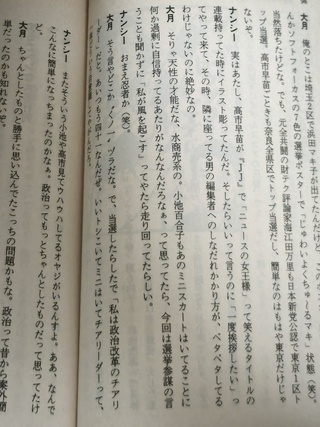 大月　俺のとこは埼玉２区で浜田マキ子が出てたんだけど
んかソフトフォーカスの７色の選挙ポスターで「じゅわいよくちゅーるマキ」状態（笑）。
当然落ちたけどな。でも、元全共闘の財テク評論家海江田万里も日本新党公認で東京１区ト
ップ当選、高市早苗ごときも奈良全県区でトップ当選だし。簡単なのはもはや東京だけじゃ
ないぞ。
ナンシー　実はあたし、高市早苗が『ＪＪ』で「ニュースの女王様」って笑えるタイトルの
連載持ってた時にイラスト彫ってたんだ。そしたらいいって言うのに「一度挨拶したい」っ
てやって来て、その時、隣に座ってる男の編集者へのしなだれかかり方が、ペタペタしてる
わけじゃないのに絶妙なの。
大月　そりゃ天性の才能だな、水商売系の。小池百合子もあのミニスカートはいてることに
何か過剰に自信持ってるあたりがなんだなぁ、って思ってたら、今回は選挙参謀の言
うことも聞かずに「私が風を起こす」ってやたら走り回ってたらしい。
ナンシー　おまえ忍者か（笑）。
大月　そう言やどこか
ヅラだな。で、当選したらしたで「私は政治改革のチアリ
ーダー」だと。あいつもう四十
なんだぜ。いいトシこいてミニはいてチアリーダーって、
ナンシー　またそういう小池や高市見てウハウハしてるオヤジがいるんすよ。ああ、なんで
こんなに簡単になっちまったのかなぁ。政治ってもっとちゃんとしたものだって思ってたけ
大月　ちゃんとしたものと勝手に思い込んでたこっちの問題かもな。政治って昔から案外簡
単だったのかも知れないぞ。